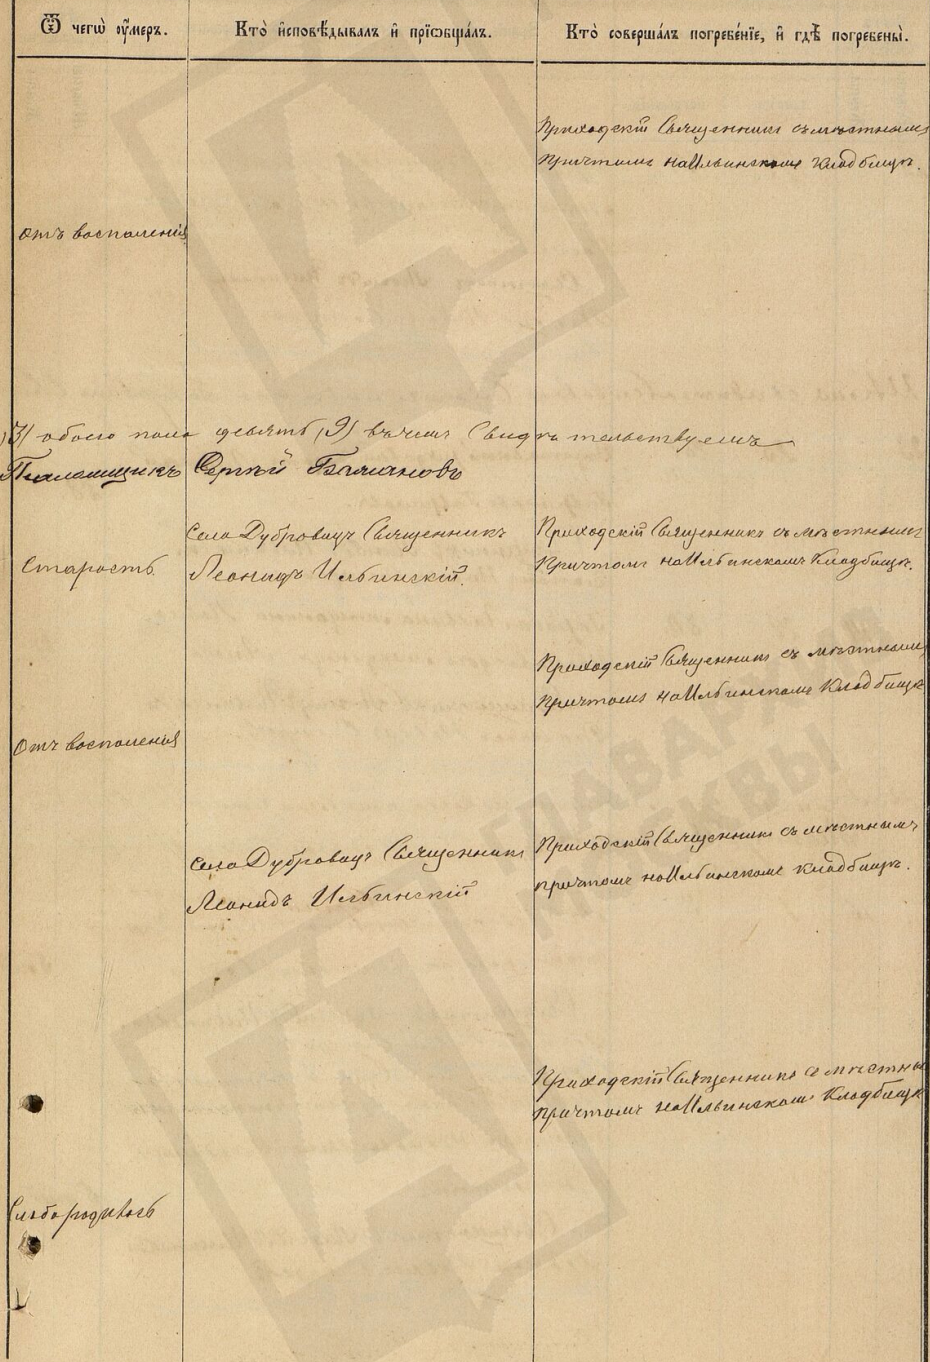 Ѿ чегѡ ᲂу҆́меръ.
Кто̀ и҆сповѣ́дывалъ и҆ прїѡбща́лъ.
Кто̀ соверша́лъ погребе́нїе, и҆ гдѣ̀ погребены̀.
Приходскій Священникъ съ мѣстнымъ
Причтомъ на Ильинскомъ Кладбищѣ.
Отъ воспаленія
(3) обоего пола девять (9) въ чемъ Свидѣтельствуемъ
Псаломщикъ Сергѣй
Села Дубровицъ Священникъ
Леонидъ Ильинскій.
Приходскій Священникъ съ мѣстнымъ
Причтомъ на Ильинскомъ Кладбищѣ.
Старость
Приходскій Священникъ съ мѣстнымъ
Причтомъ на Ильинскомъ Кладбищѣ
Отъ воспаленія
Села Дубровицъ Священникъ
Леонидъ Ильинскій
Приходскій Священникъ съ мѣстнымъ
причтомъ на Ильинскомъ кладбищѣ.
Приходскій Священникъ съ мѣстны
причтомъ на Ильинскомъ Кладбищѣ
Слабо родилось
ГЛАВАРХИВ
МОСКВЫ